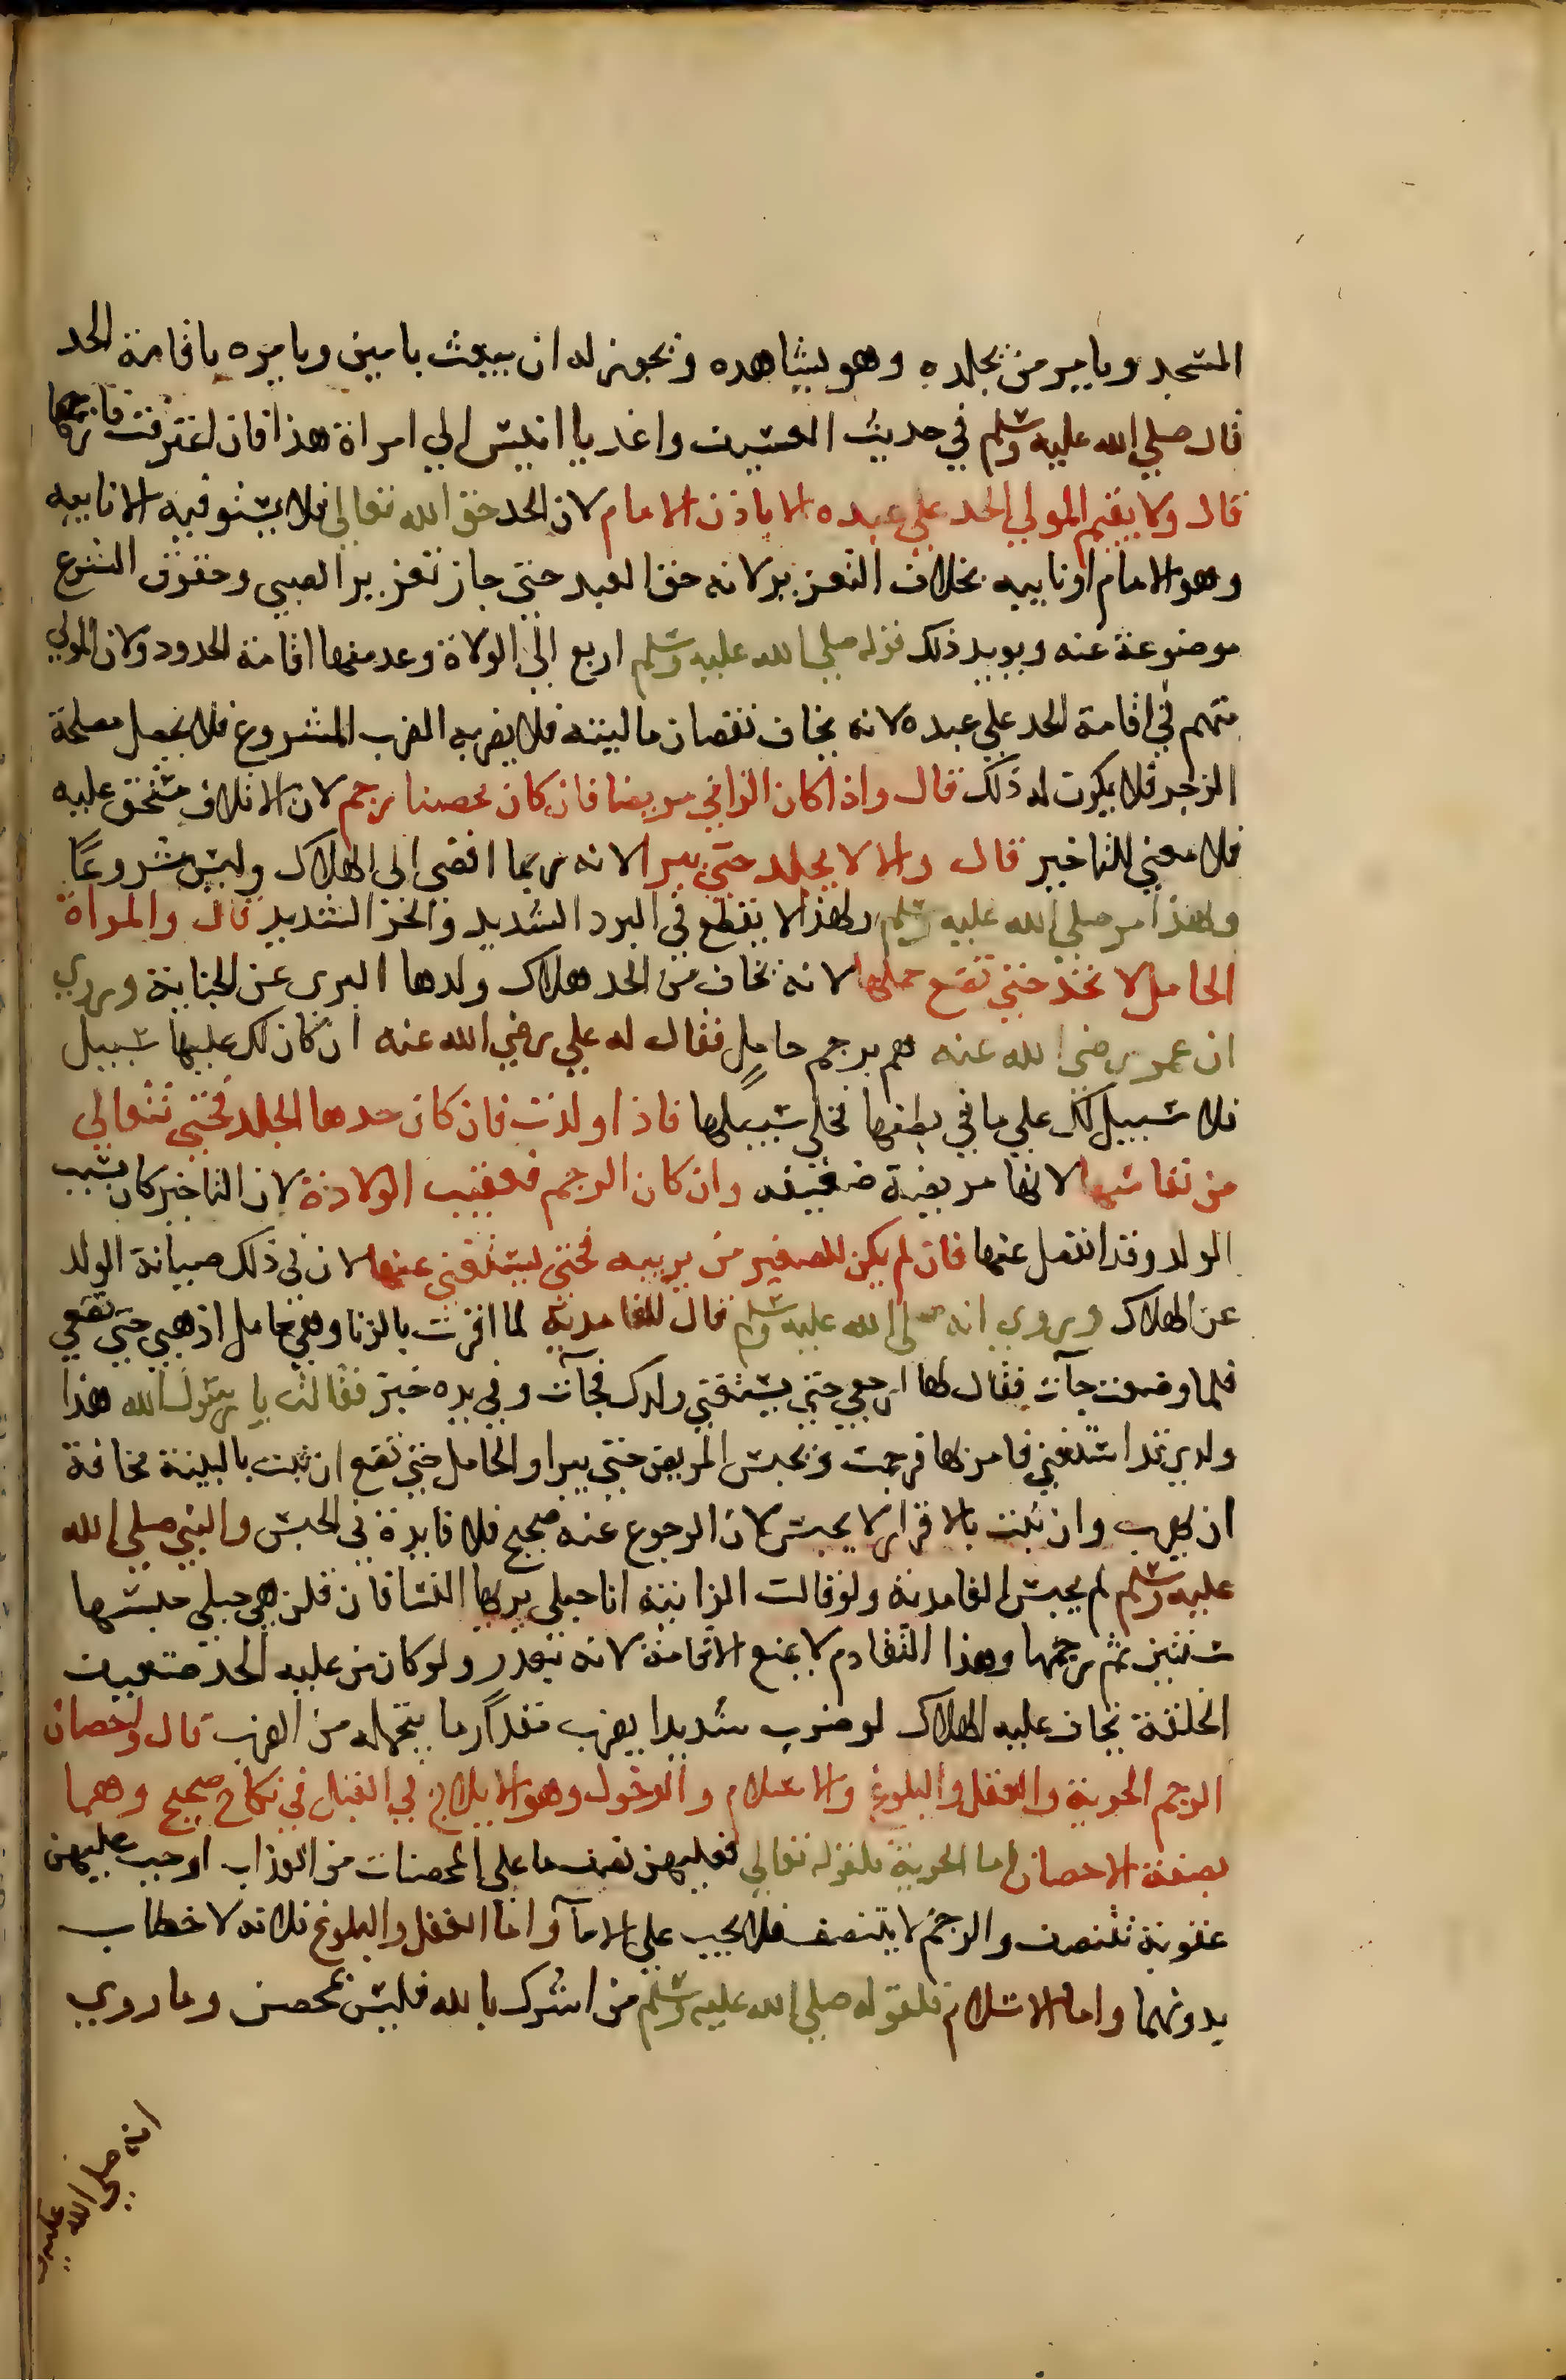 المسجد ويامر من يجلده وهو يشاهده ويجوز له ان يبعث بامين ويامره باقامة الحد
قال صلي الله عليه وسلم في حديث العسيف واغد يا انيس الي امراة هذا فان اعترفت فارجمها
قال ولا يقيم المولي الحد علي عبده الا باذن الامام لان الحد حق الله تعالي فلا يستوفيه الا نايبه
وهو الامام او نايبه بخلاف التعزير لانه حق العبد حتي جاز تعزير الصبي وحقوق الشرع
موضوعة عنه ويويد ذلك قوله صلي الله عليه وسلم اربع الي الولاة وعد منها اقامة الحدود ولان المولي
متهم في اقامة الحد علي عبده لانه يخاف نقصان ماليته فلا يضربه الضرب المشروع فلا يحصل مصلحة
الزجر فلا يكون له ذلك قال واذا كان الزاني مريضا فان كان محصنا رجم لان الاتلاف مستحق عليه
فلا معني للتاخير قال والا لا يجلد حتي يبرا لانه ربما افضي الي الهلاك وليس مشروعا
ولهذا امر صلي الله عليه وسلم ولهذا لا يقطع في البرد الشديد والحر الشديد قال والمراة
الحامل لا تحد حتي تضع حملها لانه يخاف من الحد هلاك ولدها البري عن الجناية وروي
ان عمر رضي الله عنه هم برجم حامل فقال له علي رضي الله عنه ان كان لك عليها سبيل
فلا سبيل لك علي ما في بطنها فخلي سبيلها فاذا ولدت فان كان حدها الجلد فحتي تتعالي
من نفاسها لانها مريضة ضعيفه وان كان الرجم فعقيب الولادة لان التاخير كان بسبب
الولد وقد انفصل عنها فان لم يكن للصغير من يربيه فحتي يستغني عنها لان في ذلك صيانة الولد
عن الهلاك وروي انه صلي الله عليه وسلم قال للغامدية لما اقرت بالزنا وهي حامل اذهبي حتي تضعي
فلما وضعت جآت فقال لها ارجعي حتي يستغني ولدك فجآت وفي يده خبز فقالت يا رسول الله هذا
ولدي قد استغني فامر بها فرجمت ويحبس المريض حتي يبرا والحامل حتي تضع ان ثبت بالبينة مخافة
ان يهرب وان ثبت بالاقرار لا يحبس لان الرجوع عنه صحيح فلا فايدة في الحبس والنبي صلي الله
عليه وسلم لم يحبس الغامدية ولو قالت الزانية انا حبلي يريها النسا فان قلن هي حبلي حبسها
سنتين ثم رجمها وهذا التقادم لا يمنع الاقامة لانه بعذر ولو كان من عليه الحد ضعيف
الخلقة يخاف عليه الهلاك لو ضرب شديدا يضرب مقدار ما يتحمله من الضرب قال واحصان
الرجم الحرية والعقل والبلوغ والاسلام والدخول وهو الايلاج في القبل في نكاح صحيح وهما
بصفة الاحصان اما الحرية فلقوله تعالي فعليهن نصف ما علي المحصنات من العذاب اوجب عليهن
عقوبة تتنصف والرجم لا يتنصف فلا يجب علي الامآ واما العقل والبلوغ فلانه لا خطاب
بدونهما واما الاسلام فلقوله صلي الله عليه وسلم من اشرك بالله فليس بمحصن وما روي
انه صلي الله عليه